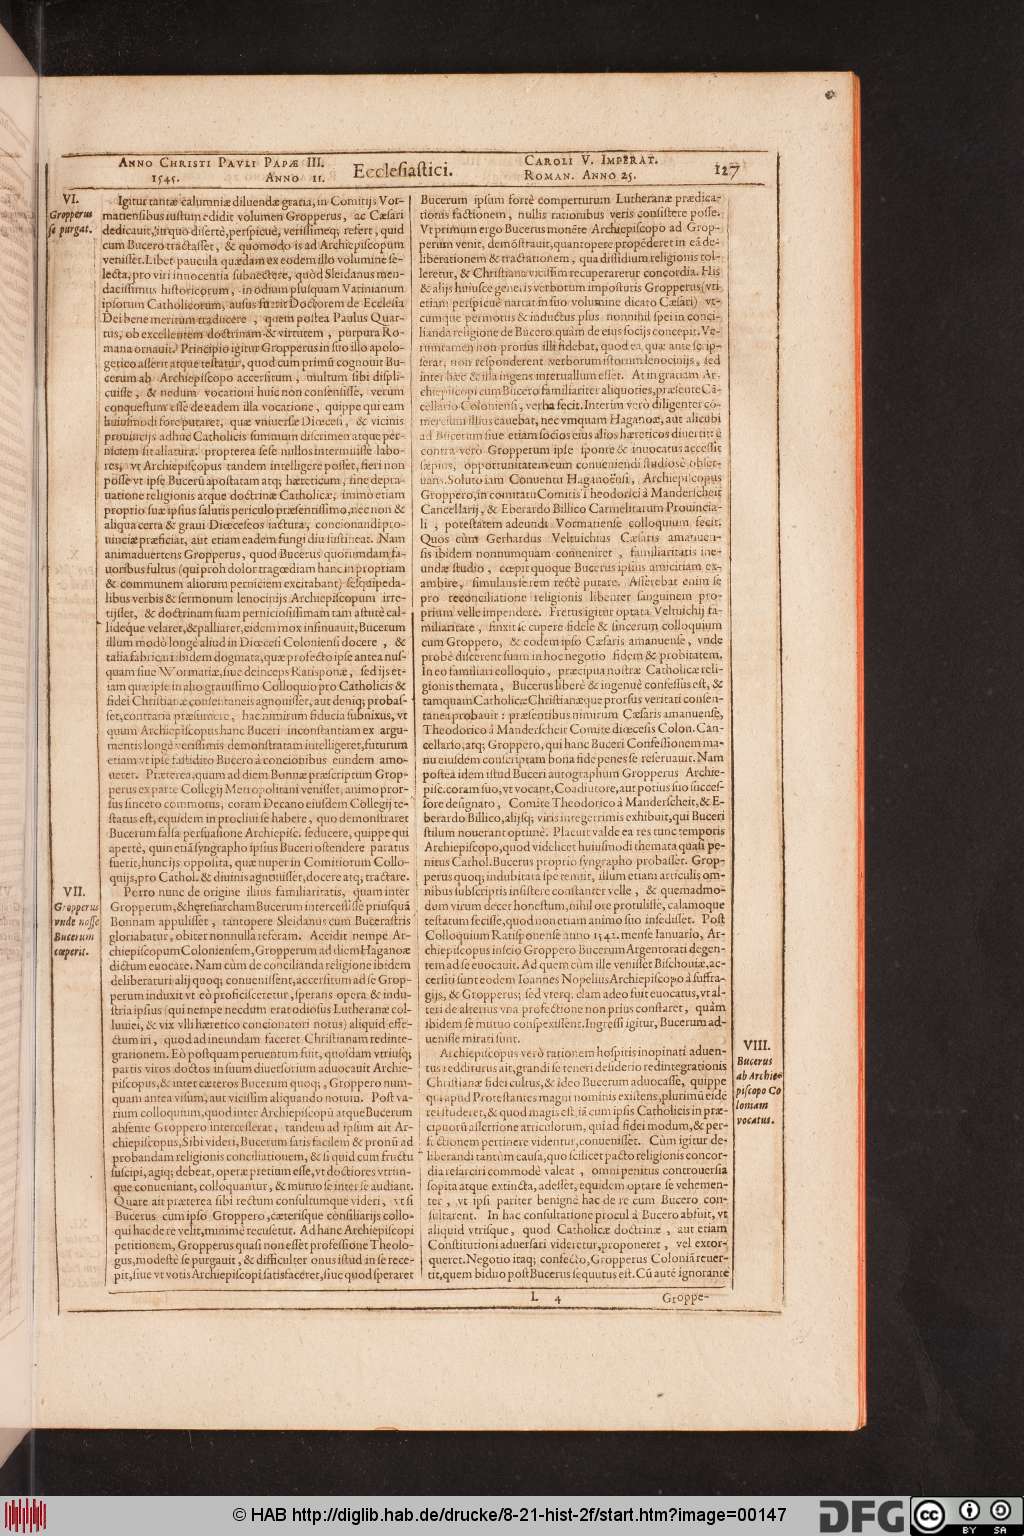 ANNO CHRISTI PAVLI PAPÆ III.
1545. ANNO 11.
Ecclesiastici.
CAROLI V. IMPERAT.
ROMAN. ANNO 25.
127
VI.
Gropperus
se purgat.
Igitur tantæ calumniæ diluendæ gratia, in Comitijs Vor-
matiensibus iustum edidit volumen Gropperus, ac Cæsari
dedicauit, in quo disertè, perspicuè, verissimeq; refert, quid
cum Bucero tractasset, & quomodo is ad Archiepiscopum
venisset. Libet paucula quædam ex eodem illo volumine se-
lecta, pro viri innocentia subnectere, quòd Sleidanus men-
dacissimus historicorum, in odium plusquam Vatinianum
ipsorum Catholicorum, ausus fuerit Doctorem de Ecclesia
Dei bene meritum traducere, quem postea Paulus Quar-
tus, ob excellentem doctrinam & virtutem, purpura Ro-
mana ornauit. Principio igitur Gropperus in suo illo apolo-
getico asserit atque testatur, quod cum primũ cognouit Bu-
cerum ab Archiepiscopo accersitum, multum sibi displi-
cuisse, & nedum vocationi huic non consensisse, verum
conquestum esse de eadem illa vocatione, quippe qui eam
huiusmodi fore putaret, quæ vniuersæ Diœcesi, & vicinis
prouincijs adhuc Catholicis summum discrimen atque per-
niciem sit allatura. propterea sese nullos intermisisse labo-
res, vt Archiepiscopus tandem intelligere posset, fieri non
posse vt ipse Bucerũ apostatam atq; hæreticum, sine depra-
uatione religionis atque doctrinæ Catholicæ, immò etiam
proprio suæ ipsius salutis periculo præsentissimo, nec non &
aliqua certa & graui Diœceseos iactura, concionandi pro-
uinciæ præficiat, aut etiam eadem fungi diu sustineat. Nam
animaduertens Gropperus, quod Bucerus quorumdam fa-
uoribus fultus (qui proh dolor tragœdiam hanc in propriam
& communem aliorum perniciem excitabant) sesquipeda-
libus verbis & sermonum lenocinijs Archiepiscopum irre-
tijsset, & doctrinam suam perniciosissimam tam astutè cal-
lideq́ue velaret, & palliaret, eidem mox insinuauit, Bucerum
illum modò longè aliud in Diœcesi Coloniensi docere, &
talia fabricari ibidem dogmata, quæ profecto ipse antea nus-
quam siue Wormatiæ, siue deinceps Ratisponæ, sed ijs et-
iam quæ ipse in alio grauissimo Colloquio pro Catholicis &
fidei Christianæ consentaneis agnouisset, aut deniq; probas-
set, contraria præsumere, hac nimirum fiducia subnixus, vt
quum Archiepiscopus hanc Buceri inconstantiam ex argu-
mentis longè verissimis demonstratam intelligeret, futurum
etiam vt ipse fastidito Bucero à concionibus eundem amo-
ueret. Præterea, quum ad diem Bonnæ præscriptum Grop-
perus ex parte Collegij Metropolitani venisset, animo pror-
sus sincero commotus, coram Decano eiusdem Collegij te-
status est, equidem in procliui se habere, quo demonstraret
Bucerum falsa persuasione Archiepisc. seducere, quippe qui
apertè, quin etiã syngrapho ipsius Buceri ostendere paratus
fuerit, hunc ijs opposita, quæ nuper in Comitiorum Collo-
quijs, pro Cathol. & diuinis agnouisset, docere atq; tractare.
VII.
Gropperus
vnde nosse
Bucerum
cœperit.
Porro nunc de origine illius familiaritatis, quam inter
Gropperum, & hæresiarcham Bucerum intercessisse priusquã
Bonnam appulisset, tantopere Sleidanus cum Bucerastris
gloriabatur, obiter nonnulla referam. Accidit nempe Ar-
chiepiscopum Coloniensem, Gropperum ad diem Haganoæ
dictum euocare. Nam cùm de concilianda religione ibidem
deliberaturi alij quoq; conuenissent, accersitum ad se Grop-
perum induxit vt eò proficisceretur, sperans opera & indu-
stria ipsius (qui nempe necdum erat odiosus Lutheranæ col-
luuiei, & vix vlli hæretico concionatori notus) aliquid effe-
ctum iri, quod ad ineundam faceret Christianam redinte-
grationem. Eò postquam peruentum fuit, quosdam vtriusq;
partis viros doctos in suum diuersorium aduocauit Archie-
piscopus, & inter cæteros Bucerum quoq;, Groppero num-
quam antea visum, aut vicissim aliquando notum. Post va-
rium colloquium, quod inter Archiepiscopũ atque Bucerum
absente Groppero intercesserat, tandem ad ipsum ait Ar-
chiepiscopus, Sibi videri, Bucerum satis facilem & pronũ ad
probandam religionis conciliationem, & si quid cum fructu
suscipi, agiq; debeat, operæ pretium esse, vt doctiores vtrim-
que conueniant, colloquantur, & mutuo se inter se audiant.
Quare ait præterea sibi rectum consultumque videri, vt si
Bucerus cum ipso Groppero, cæterisque consiliarijs collo-
qui hac de re velit, minimè recusetur. Ad hanc Archiepiscopi
petitionem, Gropperus quasi non esset professione Theolo-
gus, modestè se purgauit, & difficulter onus istud in se rece-
pit, siue vt votis Archiepiscopi satisfaceret, siue quod speraret
Bucerum ipsum fortè comperturum Lutheranæ prædica-
tionis factionem, nullis rationibus veris consistere posse.
Vt primum ergo Bucerus monête Archiepiscopo ad Grop-
perum venit, demõstrauit, quantopere propederet in eã de-
liberationem & tractationem, qua dissidium religionis tol-
leretur, & Christiana vicissim recuperaretur concordia. His
& alijs huiusce generis verborum imposturis Gropperus (vti
etiam perspicuè narrat in suo volumine dicato Cæsari) vt-
cumque permotus & inductus plus nonnihil spei in conci-
lianda religione de Bucero, quàm de eius socijs concepit. Ve-
rumtamen non prorsus illi fidebat, quod ea quæ ante scrip-
serat, non responderent verborum istorum lenocinijs, sed
inter hæc & illa ingens interuallum esset. At in gratiam Ar-
chiepiscopi cum Bucero familiariter aliquoties, præsente Cã-
cellario Coloniensi, verba fecit. Interim verò diligenter cõ-
mercium illius cauebat, nec vmquam Haganoæ, aut alicubi
ad Bucerum siue etiam socios eius alios hæreticos diuertit: è
contra verò Gropperum ipse sponte & inuocatus accessit
sæpius, opportunitatem eum conueniendi studiosè obser-
uans. Soluto iam Conuentu Haganoënsi, Archiepiscopus
Groppero, in comitatu Comitis Theodorici à Manderscheit
Cancellarij, & Eberardo Billico Carmelitarum Prouincia-
li, potestatem adeundi Vormatiense colloquium fecit.
Quos cùm Gerhardus Veltuichius Cæsaris amanuen-
sis ibidem nonnumquam conueniret, familiaritatis ine-
undæ studio, cœpit quoque Bucerus ipsius amicitiam ex-
ambire, simulans se rem rectè putare. Asserebat enim se
pro reconciliatione religionis libenter sanguinem pro-
prium velle impendere. Fretus igitur optata Veltuichij fa-
miliaritate, finxit se cupere fidele & sincerum colloquium
cum Groppero, & eodem ipso Cæsaris amanuense, vnde
probè discerent suam in hoc negotio fidem & probitatem.
In eo familiari colloquio, præcipua nostræ Catholicæ reli-
gionis themata, Bucerus liberè & ingenuè confessus est, &
tamquam Catholicæ Christianæque prorsus veritati consen-
tanea probauit: præsentibus nimirum Cæsaris amanuense,
Theodorico à Manderscheit Comite diœcesis Colon. Can-
cellario, atq; Groppero, qui hanc Buceri Confessionem ma-
nu eiusdem conscriptam bona fide penes se reseruauit. Nam
postea idem istud Buceri autographum Gropperus Archie-
pisc. coram suo, vt vocant, Coadiutore, aut potius suo succes-
sore designato, Comite Theodorico à Manderscheit, & E-
berardo Billico, alijsq; viris integerrimis exhibuit, qui Buceri
stilum nouerant optimè. Placuit valde ea res tunc temporis
Archiepiscopo, quod videlicet huiusmodi themata quasi pe-
nitus Cathol. Bucerus proprio syngrapho probasset. Grop-
perus quoq; indubitata spe tenuit, illum etiam articulis om-
nibus subscriptis insistere constanter velle, & quemadmo-
dum virum decet honestum, nihil ore protulisse, calamoque
testatum fecisse, quod non etiam animo suo insedisset. Post
Colloquium Ratisponense anno 1542. mense Ianuario, Ar-
chiepiscopus inscio Groppero Bucerum Argentorati degen-
tem ad se euocauit. Ad quem cùm ille venisset Bischouiæ, ac-
cersiti sunt eodem Ioannes Nopelius Archiepiscopo à suffra-
gijs, & Gropperus; sed vterq. clam adeo fuit euocatus, vt al-
teri de alterius vna profectione non prius constaret, quàm
ibidem se mutuo conspexissent. Ingressi igitur, Bucerum ad-
uenisse mirati sunt.
VIII.
Bucerus
ab Archie-
piscopo Co
loniam
vocatus.
Archiepiscopus verò rationem hospitis inopinati aduen-
tus redditurus ait, grandi se teneri desiderio redintegrationis
Christianæ fidei cultus, & ideo Bucerum aduocasse, quippe
qui apud Protestantes magni nominis existens, plurimũ eidẽ
rei studeret, & quod magis est, iã cum ipsis Catholicis in præ-
cipuorũ assertione articulorum, qui ad fidei modum, & per-
fectionem pertinere videntur, conuenisset. Cùm igitur de-
liberandi tantùm causa, quo scilicet pacto religionis concor-
dia resarciri commodè valeat, omni penitus controuersia
sopita atque extincta, adesset, equidem optare se vehemen-
ter, vt ipsi pariter benignè hac de re cum Bucero con-
sultarent. In hac consultatione procul à Bucero absuit, vt
aliquid vtrisque, quod Catholicæ doctrinæ, aut etiam
Constitutioni aduersari videretur, proponeret, vel extor-
queret. Negotio itaq; confecto, Gropperus Coloniã reuer-
tit, quem biduo post Bucerus sequutus est. Cũ autẽ ignorante
L 4
Groppe-
© HAB http://diglib.hab.de/drucke/8-21-hist-2f/start.htm?image=00147
DFG
cc
BY SA